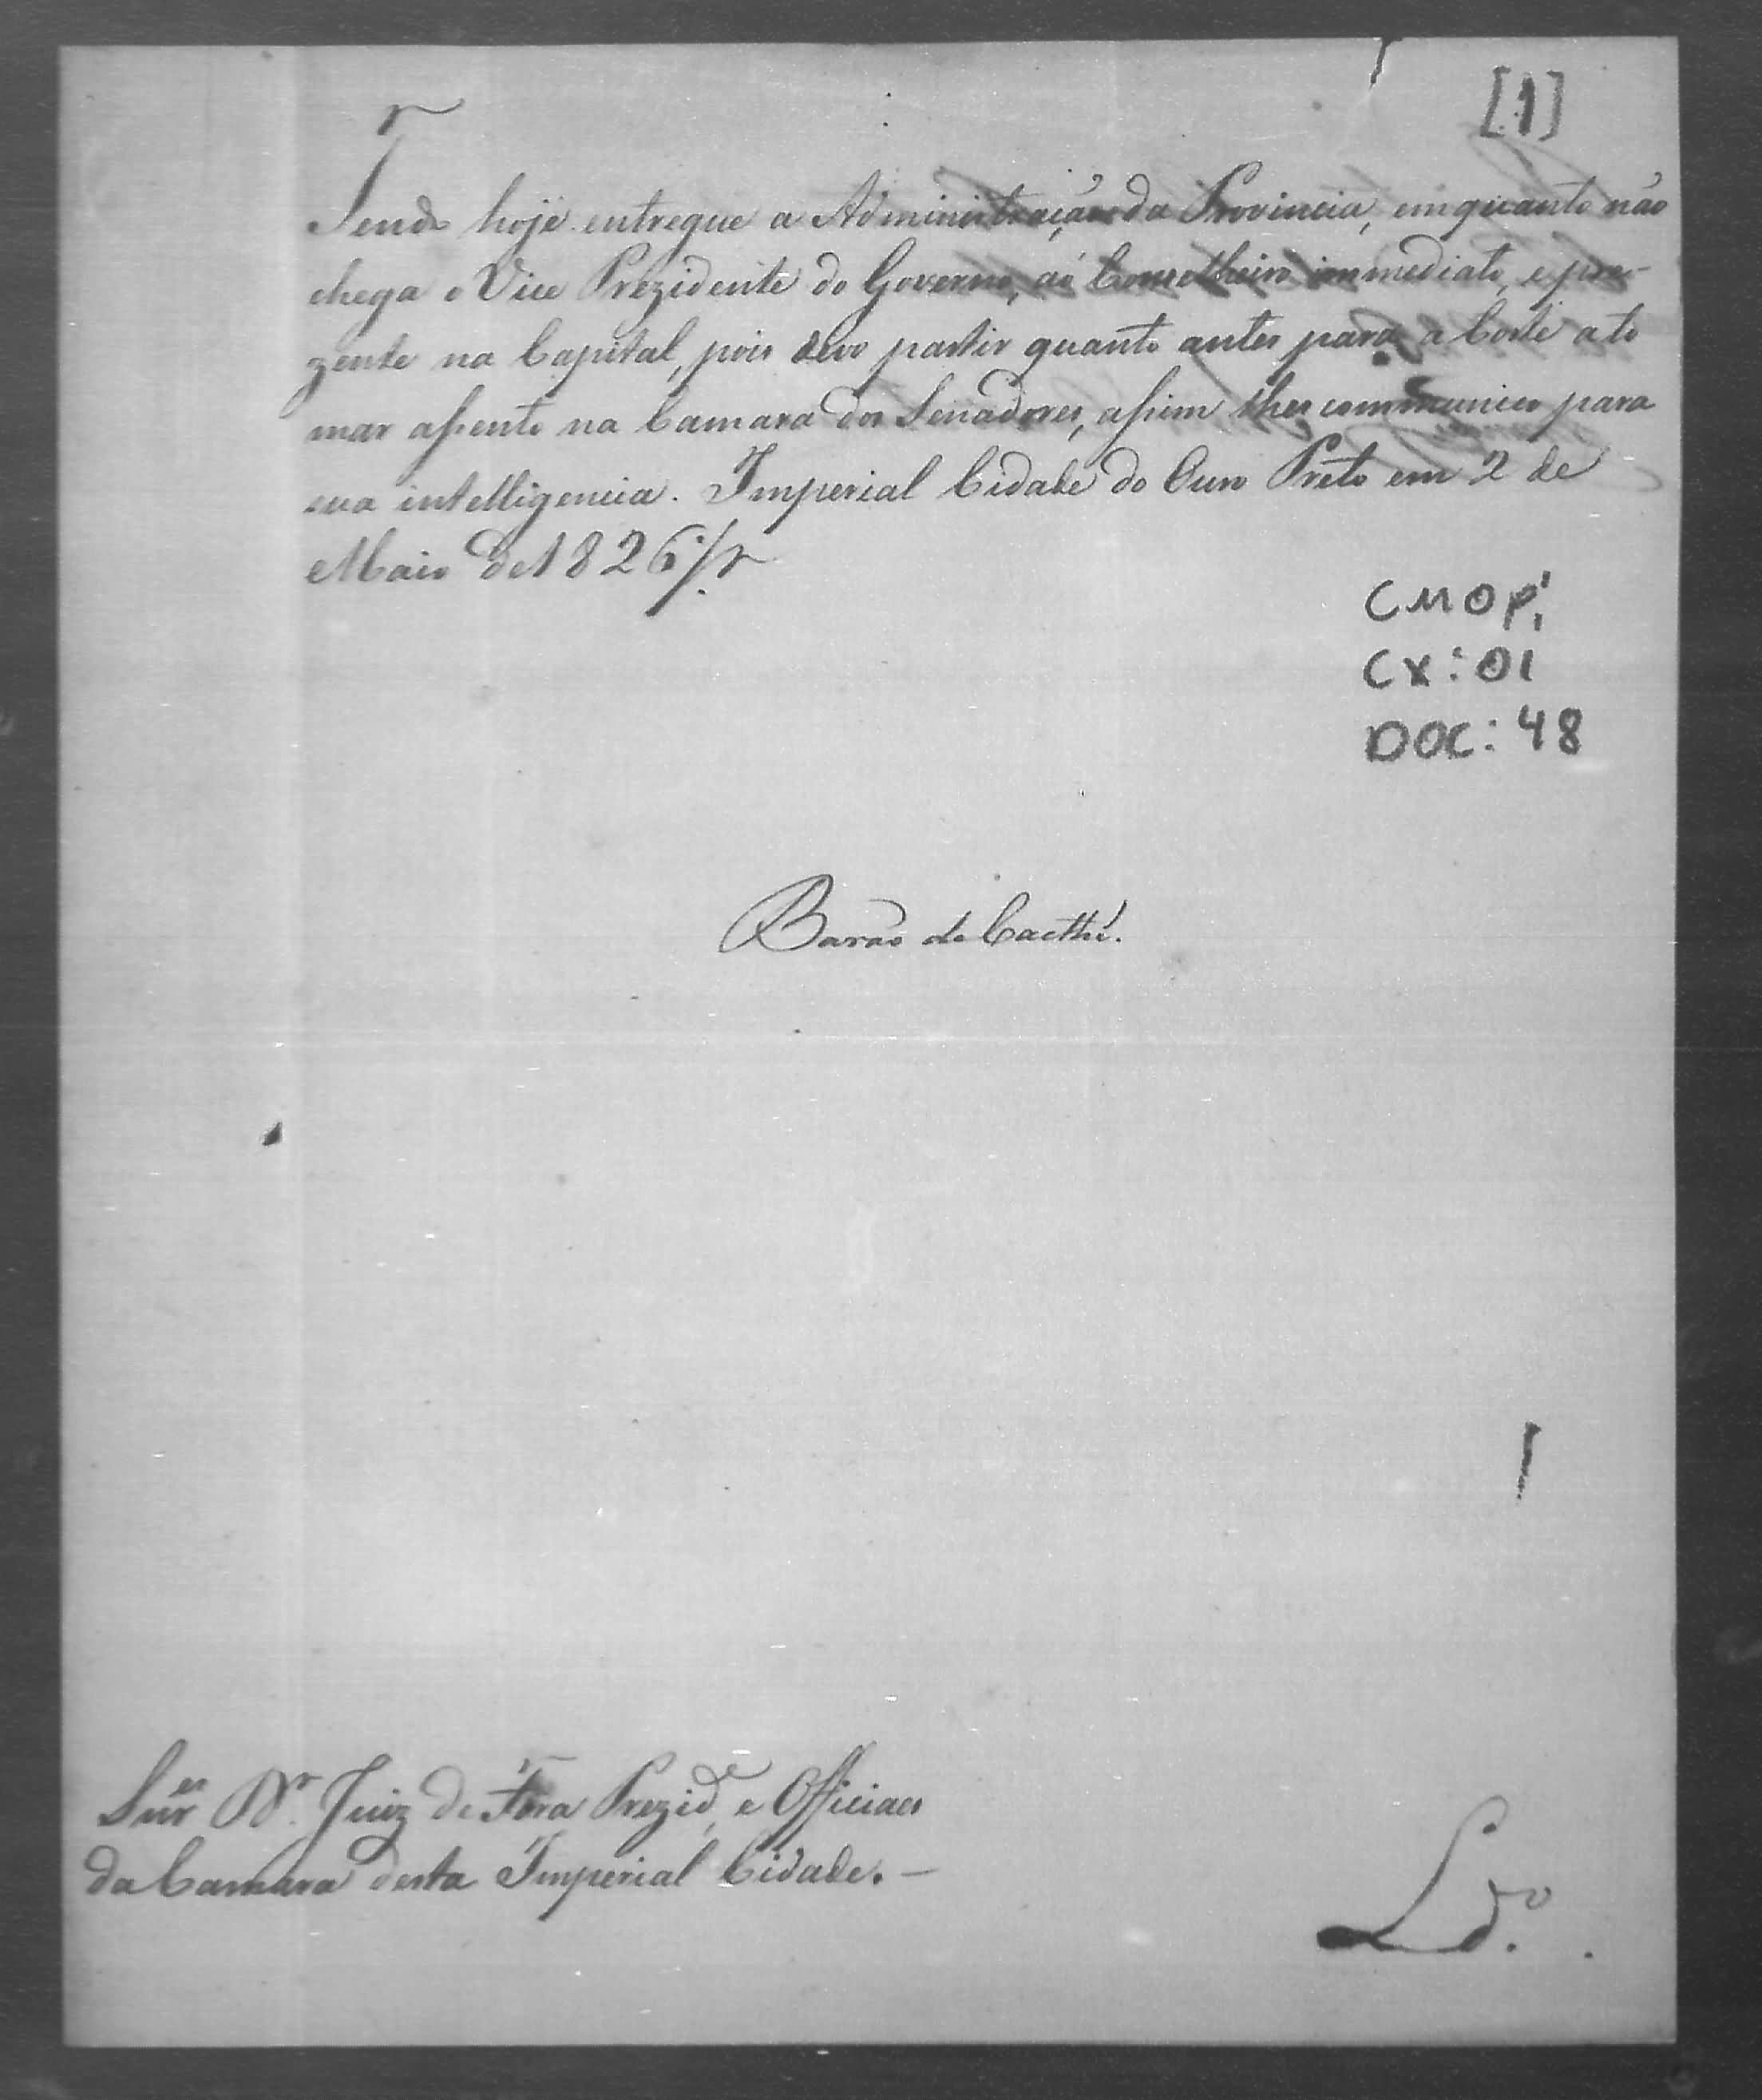 [1]
Tendo hoje entregue a Administração da Provincia, emquanto não
chega o Vice Prezidente do Governo, ao Conselheiro immediato, e pre-
zente na Capital, pois devo partir quanto antes para a Corte a to
mar assento na Camara dos Senadores, assim lhes communico para
sua intelligencia. Imperial Cidade do Ouro Preto em 2 de
Maio de 1826
CMOP
CX: 01
DOC: 48
Barão de Caethé.
Snr.es Dr. Juiz de Fora Prezid.e, e Officiaes
da Camara desta Imperial Cidade. —
L.do